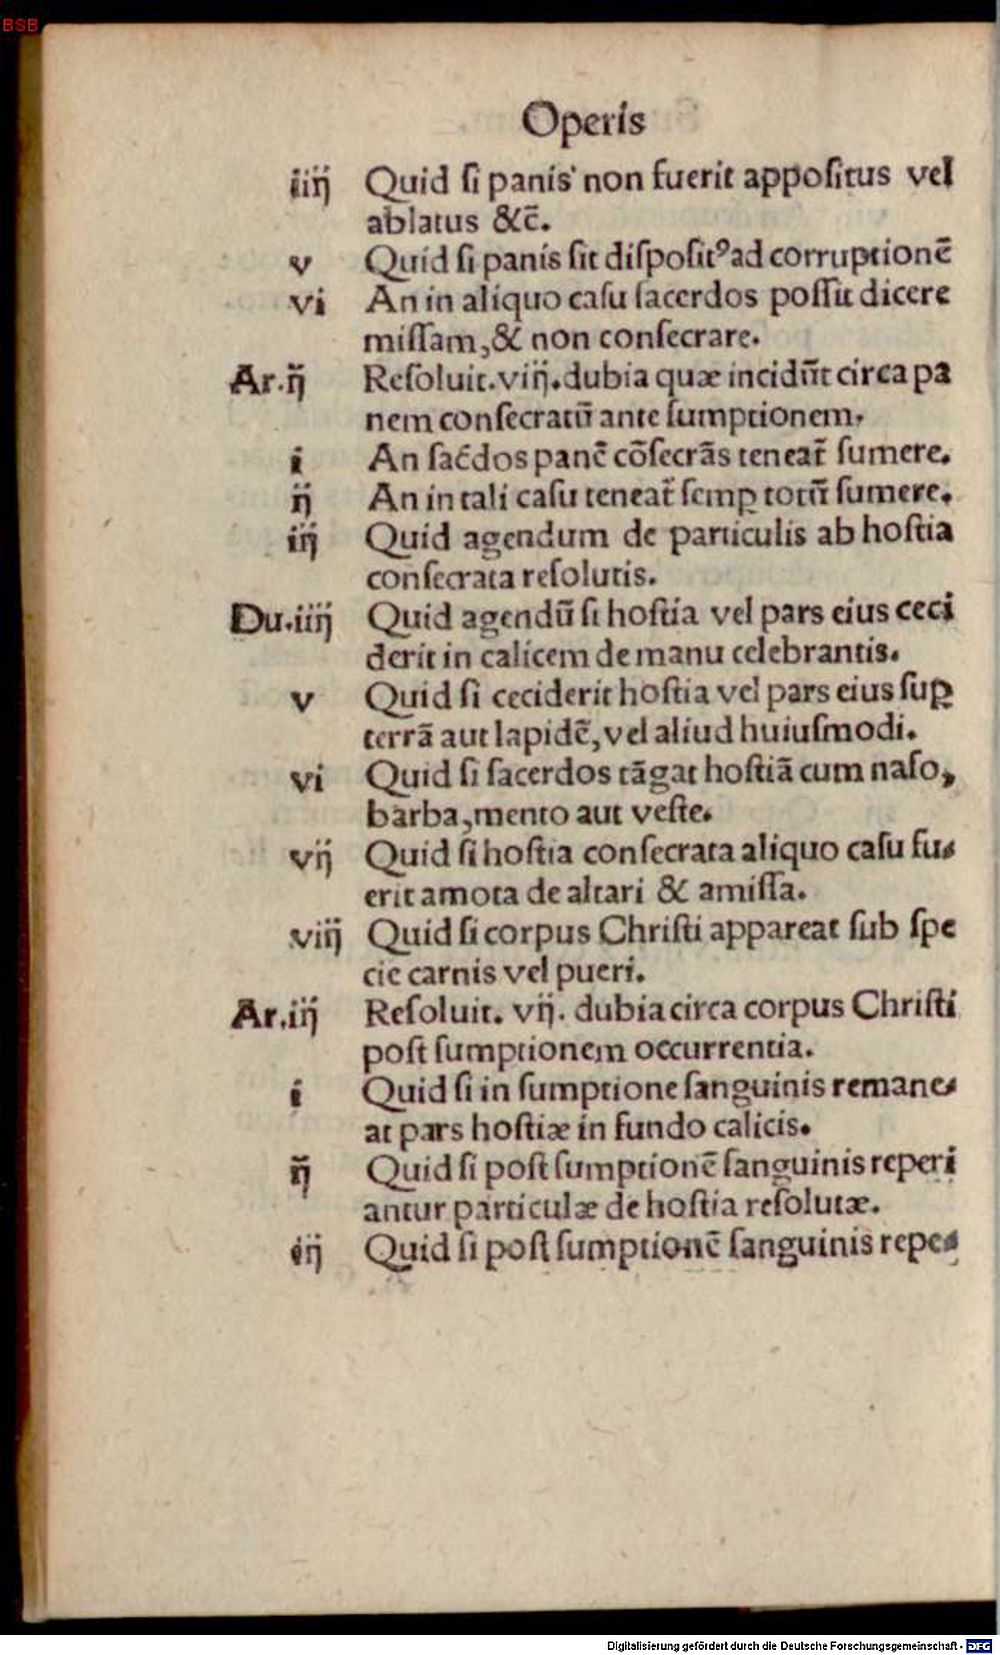 BSB
Operis
iiij Quid ſi panis non fuerit appoſitus vel
ablatus &c̃.
v Quid ſi panis ſit diſpoſitꝰ ad corruptionẽ
vi An in aliquo caſu ſacerdos poſſit dicere
miſſam, & non conſecrare.
Ar.ij Reſoluit.viij.dubia quæ incidũt circa pa
nem conſecratũ ante ſumptionem.
i An ſac̃dos panẽ cõſecrãs teneat̃ ſumere.
ij An in tali caſu teneat̃ ſemꝑ totũ ſumere.
iij Quid agendum de particulis ab hoſtia
conſecrata reſolutis.
Du.iiij Quid agendũ ſi hoſtia vel pars eius ceci
derit in calicem de manu celebrantis.
v Quid ſi ceciderit hoſtia vel pars eius ſuꝑ
terrã aut lapidẽ, vel aliud huiuſmodi.
vi Quid ſi ſacerdos tãgat hoſtiã cum naſo,
barba, mento aut veſte.
vij Quid ſi hoſtia conſecrata aliquo caſu fu⸗
erit amota de altari & amiſſa.
viij Quid ſi corpus Chriſti appareat ſub ſpe
cie carnis vel pueri.
Ar.iij Reſoluit. vij. dubia circa corpus Chriſti
poſt ſumptionem occurrentia.
i Quid ſi in ſumptione ſanguinis remane⸗
at pars hoſtiæ in fundo calicis.
ij Quid ſi poſt ſumptionẽ ſanguinis reperi
antur particulæ de hoſtia reſolutæ.
iij Quid ſi poſt ſumptionẽ ſanguinis repe⸗
Digitalisierung gefördert durch die Deutsche Forschungsgemeinschaft - DFG